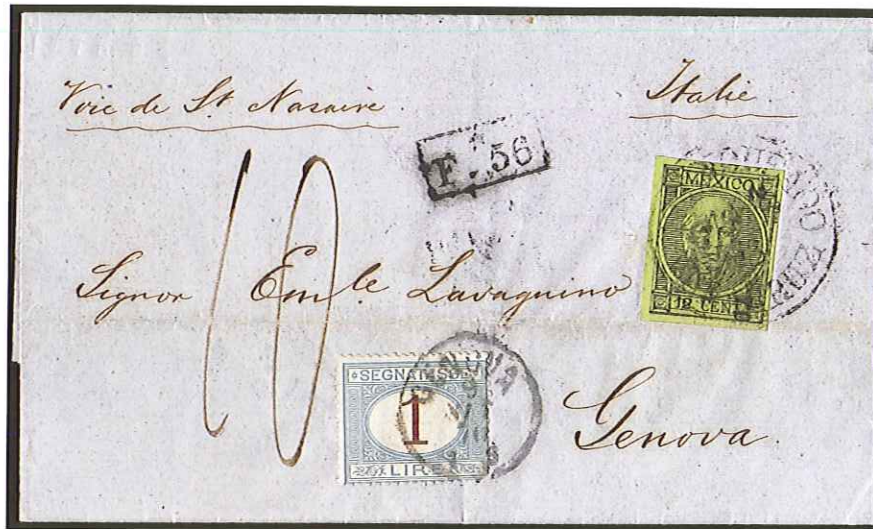 Voie de St Nazaire.
Italie
F. 56
MEXICO
12 CENT
10
Signor Emle Lavagnino
SEGNATASSE
1
LIRE
GENOVA
Genova.